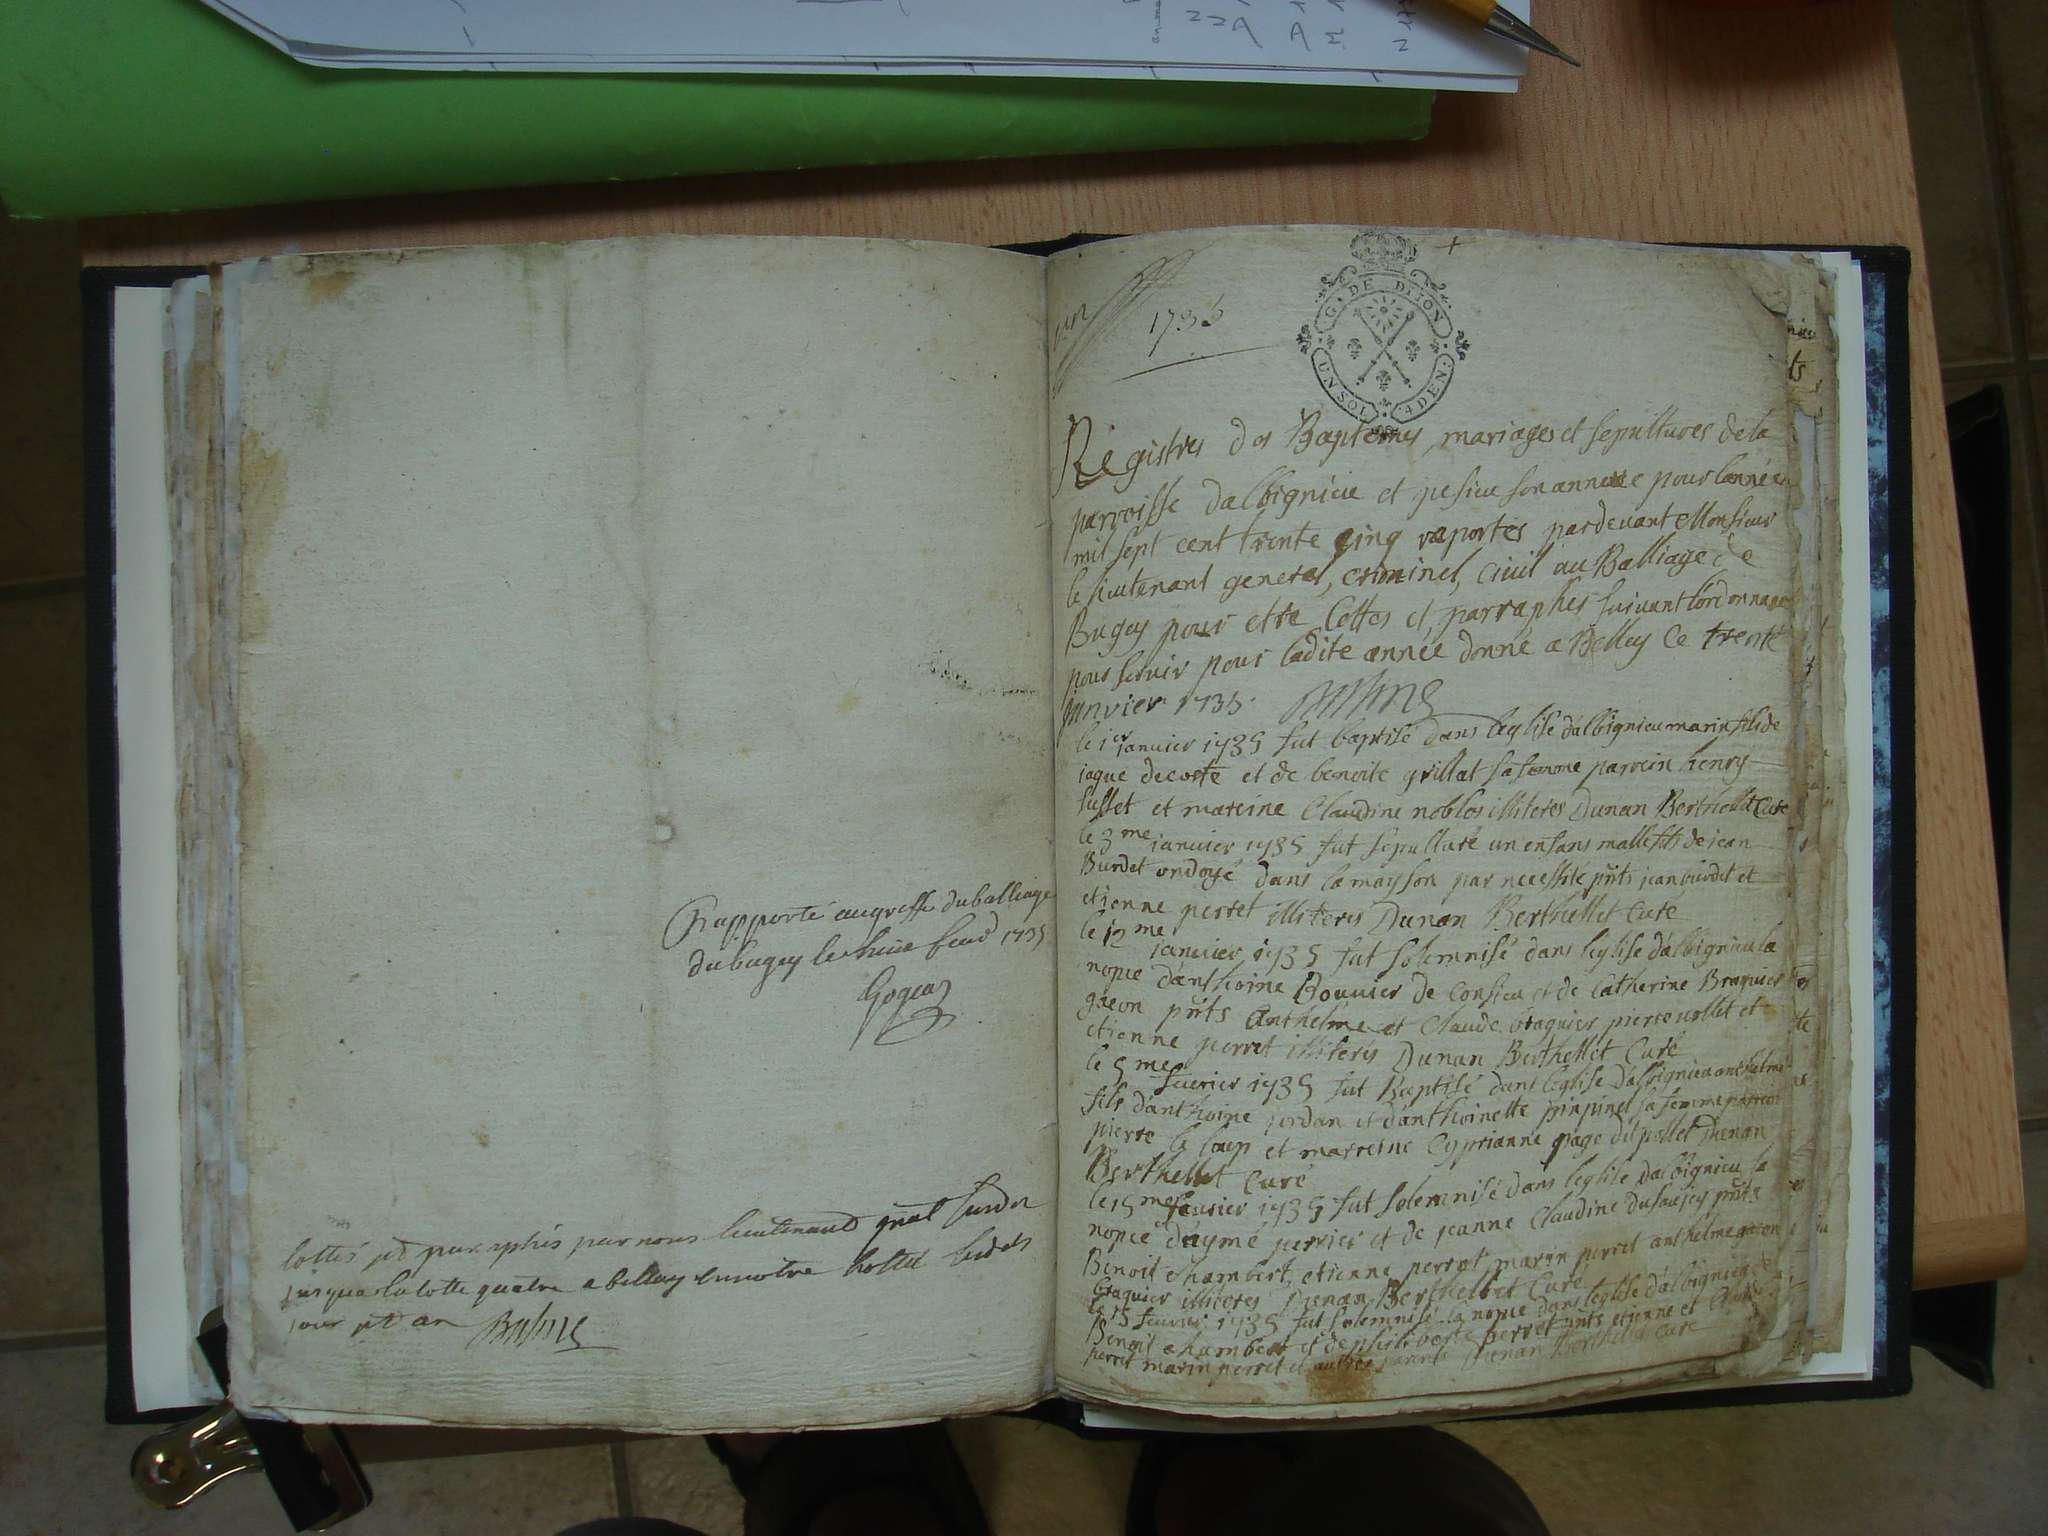 Rapporté au greffe du balliage
du bugey le
1735
Gogeat
Cottés et paraphés par nous lieutenant gnal
jusqua la cotte quatre a belley en notre hottel
jour et an
un
1735
G. DE DIJON
UN SOL 4 DEN.
Registres des Baptemes, mariages et sepultures de la
parroisse dalbignieu et son annexe pour lannée
mil sept cent trente cinq raportés pardevant Monsieur
le lieutenant general, criminel, civil au Balliage de
Bugey pour etre Cottes et parraphes suivant lordonnance
pour servir pour ladite année donné a Belley Ce trente
janvier 1735
le 1er janvier 1735 fut baptisé dans leglise dalbignieu marin fils de
jaque decoste et de benoite grillat sa femme parrein henry
susset et mareine Claudine noblos illiteres Dunan Berthellet Curé
le 3me janvier 1735 fut sepulturé un enfans malle fils de jean
Burdet ondoyé dans la mayson par necessité pnts jean burdet et
etienne perret illiteris Dunan Berthellet Curé
le 12me janvier 1735 fut solemnisé dans leglise dalbignieu la
nopce danthoine Bouvier de Consieu et de Catherine Braquier
gaeon pnts Anthelme et Claude braquier pierre vollet et
etienne perret illiteris Dunan Berthellet Curé
le 5me fevrier 1735 fut Baptisé dans leglise dalbignieu anthelme
fils danthoine jordan et danthoinette pinpinel sa femme parrein
pierre le loup et marreine Cyprianne page dit pollet Dunan
Berthellet Curé
le 15me fevrier 1735 fut solemnisé dans leglise dalbignieu la
nopce daymé perrier et de jeanne Claudine pnts
Benoit Chambert, etienne perret, marin perret anthelme gaeon
braquier illiteres Dunan Berthellet Curé
le 15 fevrier 1735 fut solemnisé la nopce dans leglise dalbignieu de
Benoit Chambert et de philiberte perret pnts etienne et Claude
perret marin perret et autres parents Dunan Berthellet Curé